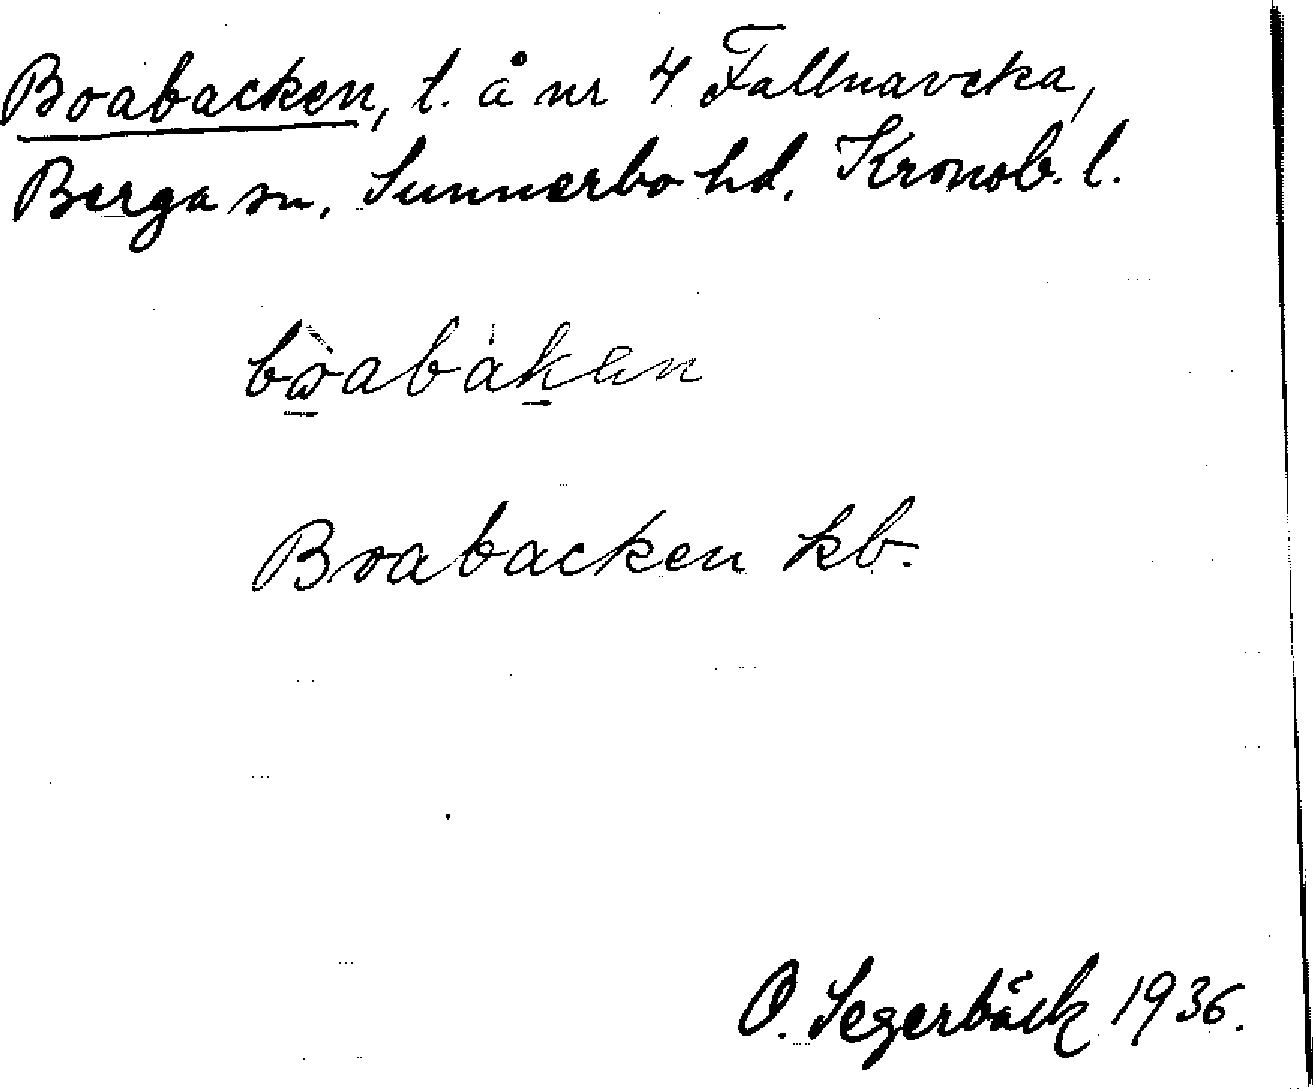 Boabacken, t. å nr 4 Fallnaveka,
Berga sn. Sunnerbo hd. Kronob. l.
bòabákен
Boabacken kb.
O. Segerbäck 1936.